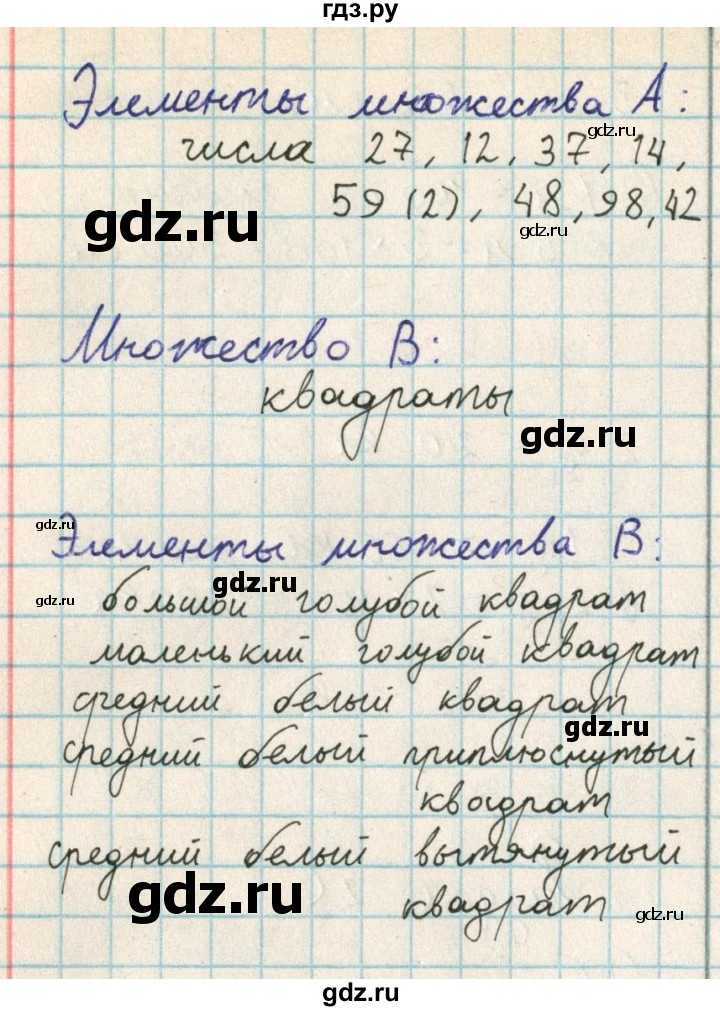 гдз.ру
Элементы множества А:
gdz.ru
числа 27, 12, 37, 14,
59 (2), 48, 98, 42
gdz.ru
gdz.ru
Множество В:
квадраты
gdz.ru
gdz.ru
Элементы множества В:
gdz.ru
gdz.ru
большой голубой квадрат
маленький голубой квадрат
средний белый квадрат
gdz.ru
средний белый приплюснутый
квадрат
средний белый вытянутый
gdz.ru
квадрат
gdz.ru
gdz.ru